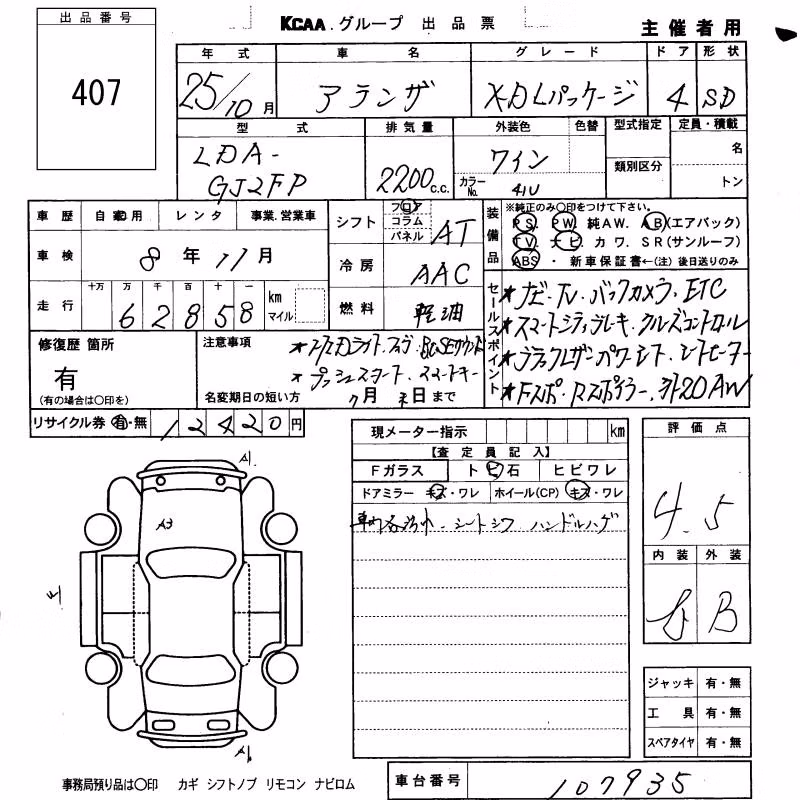 KCAA.グループ 出品票 主催者用
出品番号
407
年式 車名 グレード ドア 形状
25/10月 アテンザ XD Lパッケージ 4 SD
型式 排気量 外装色 色替 型式指定 定員・積載
LDA-
GJ2FP
2200c.c.
ワイン
カラーNo. 41U
類別区分
名
トン
車歴 自家用 レンタ 事業.営業車
車検 8年11月
走行 十万 万 千 百 十 一
62858 km マイル
シフト フロア コラム パネル AT
冷房 AAC
燃料 軽油
装備品
※純正のみ〇印をつけて下さい。
PS. PW. 純AW. AB(エアバック)
TV. ナビ. カワ. SR(サンルーフ)
ABS・新車保証書←(注)後日送りのみ
セールスポイント
★ナビ.TV.バックカメラ.ETC
★スマートシティブレーキ.クルーズコントロール
★ブラックレザーパワーシート.シートヒーター
★Fスポ.Rスポイラー.外20AW
修復歴 箇所
有
(有の場合は〇印を)
注意事項
★プッシュスタート.スマートキー
名変期日の短い方
7月末日まで
リサイクル券 有・無 12420円
現メーター指示 km
【査定員記入】
Fガラス トビ石 ヒビワレ
ドアミラー キズ・ワレ ホイール(CP) キズ・ワレ
シートシワ ハンドルハゲ
評価点
4.5
内装 外装
B
A1
A3
ジャッキ 有・無
工具 有・無
スペアタイヤ 有・無
事務局預り品は〇印 カギ シフトノブ リモコン ナビロム
車台番号 107935